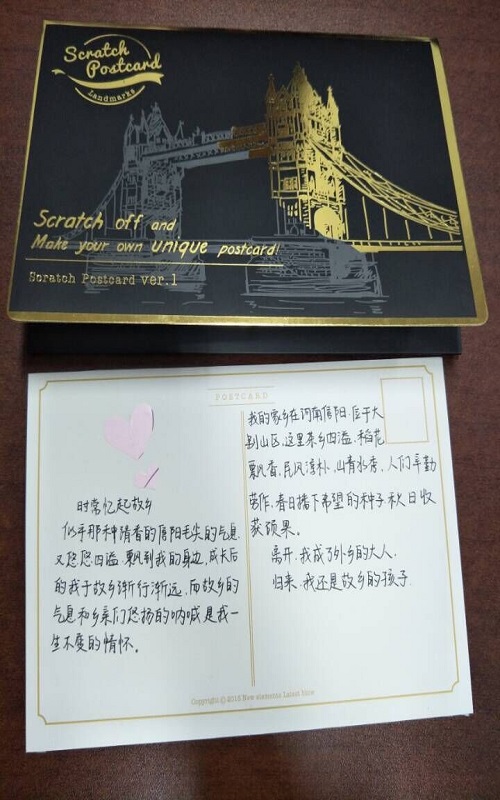 Scratch
Postcard
Landmarks
Scratch off and
Make your own unique postcard!
Scratch Postcard ver.1
POSTCARD
时常忆起故乡
似乎那种清香的信阳毛尖的气息
又悠悠四溢.飘到我的身边,成长后
的我于故乡渐行渐远.而故乡的
气息和乡亲们悠扬的呐喊是我一
生不变的情怀.
我的家乡在河南信阳.位于大
别山区.这里茶乡四溢.稻花
飘香.民风淳朴.山青水秀.人们辛勤
劳作.春日播下希望的种子.秋日收
获硕果。
离开.我成了外乡的大人.
归来.我还是故乡的孩子.
Copyright ⓒ 2015 New elements Latest time